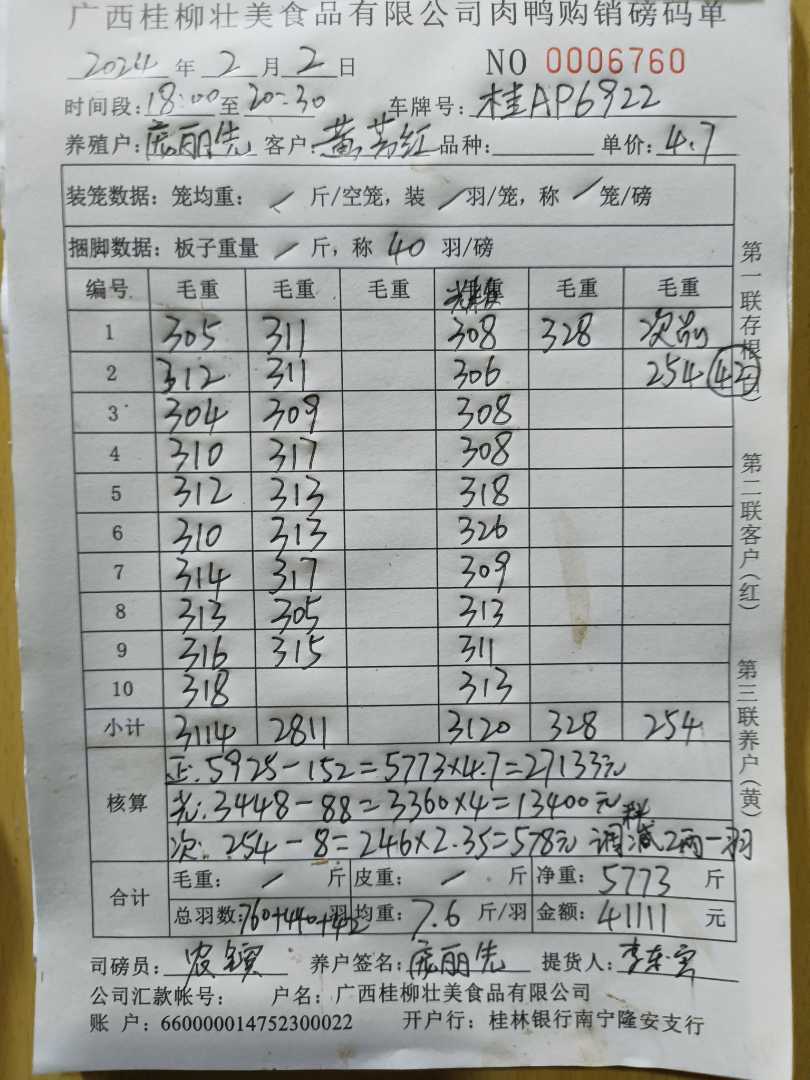 广西桂柳壮美食品有限公司肉鸭购销磅码单
2024 年 2 月 2 日 NO 0006760
时间段: 18:00 至 20:30 车牌号: 桂AP6922
养殖户: 庞丽先 客户: 黄芳红 品种: 单价: 4.7
装笼数据: 笼均重: / 斤/空笼, 装 / 羽/笼, 称 / 笼/磅
捆脚数据: 板子重量 / 斤, 称 40 羽/磅
编号 毛重 毛重 毛重 毛重 毛重
1 305 311 308 328 次品
2 312 311 306 254 (42)
3 304 309 308
4 310 317 308
5 312 313 318
6 310 313 326
7 314 317 309
8 313 305 313
9 316 315 311
10 318 313
小计 3114 2811 3120 328 254
核算 正: 5925-152=5773×4.7=27133元
光: 3448-88=3360×4=13400元
次: 254-8=246×2.35=578元 调减2两一羽
合计 毛重: / 斤 皮重: / 斤 净重: 5773 斤
总羽数: 760+440+42 羽 均重: 7.6 斤/羽 金额: 41111 元
司磅员: 养户签名: 庞丽先 提货人:
公司汇款帐号: 户名: 广西桂柳壮美食品有限公司
账 户: 660000014752300022 开户行: 桂林银行南宁隆安支行
第一联存根(白)
第二联客户(红)
第三联养户(黄)